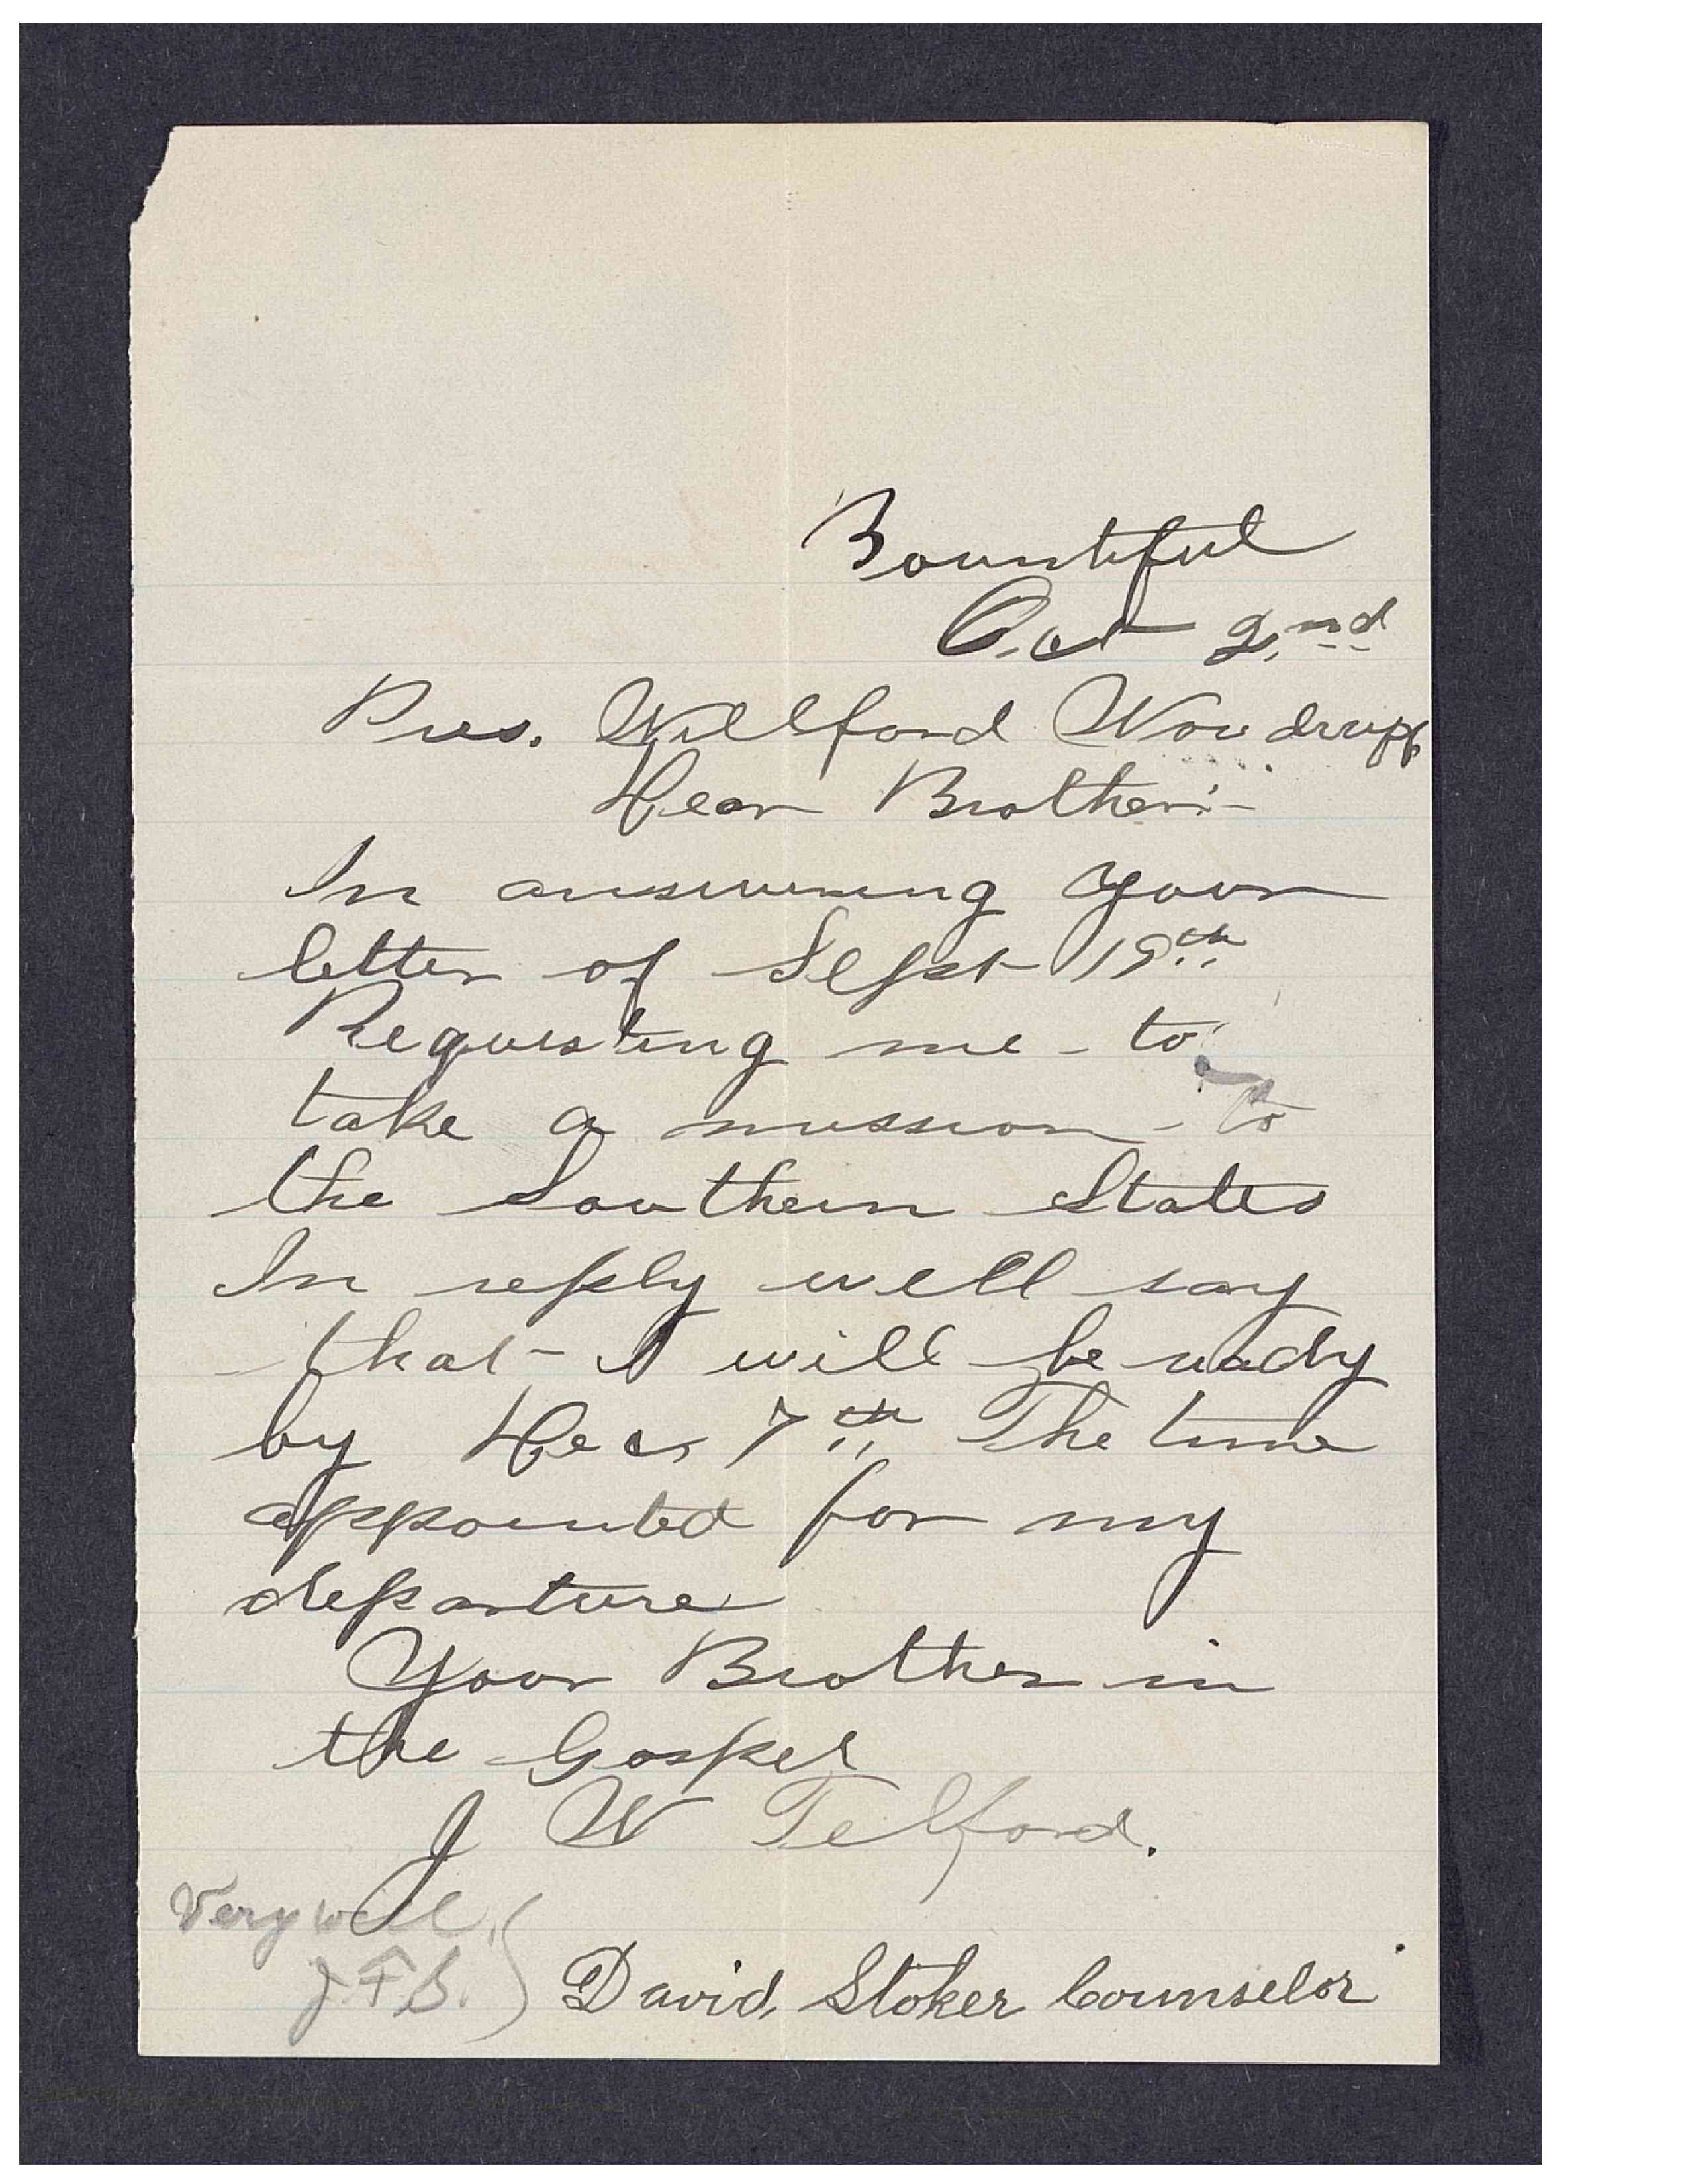 Bountiful
Oct 2nd
Pres. Willford Woodruff
Dear Brother:-
In answering your
letter of Sept 19th
Requesting me - to
take a mission - to
the Southern States
In reply well say
that - I will be ready
by Dec 7th The time
appointed for my
departure
Your Brother in
the Gospel
J W Telford.
Very well,
J. F S.
David Stoker Counselor